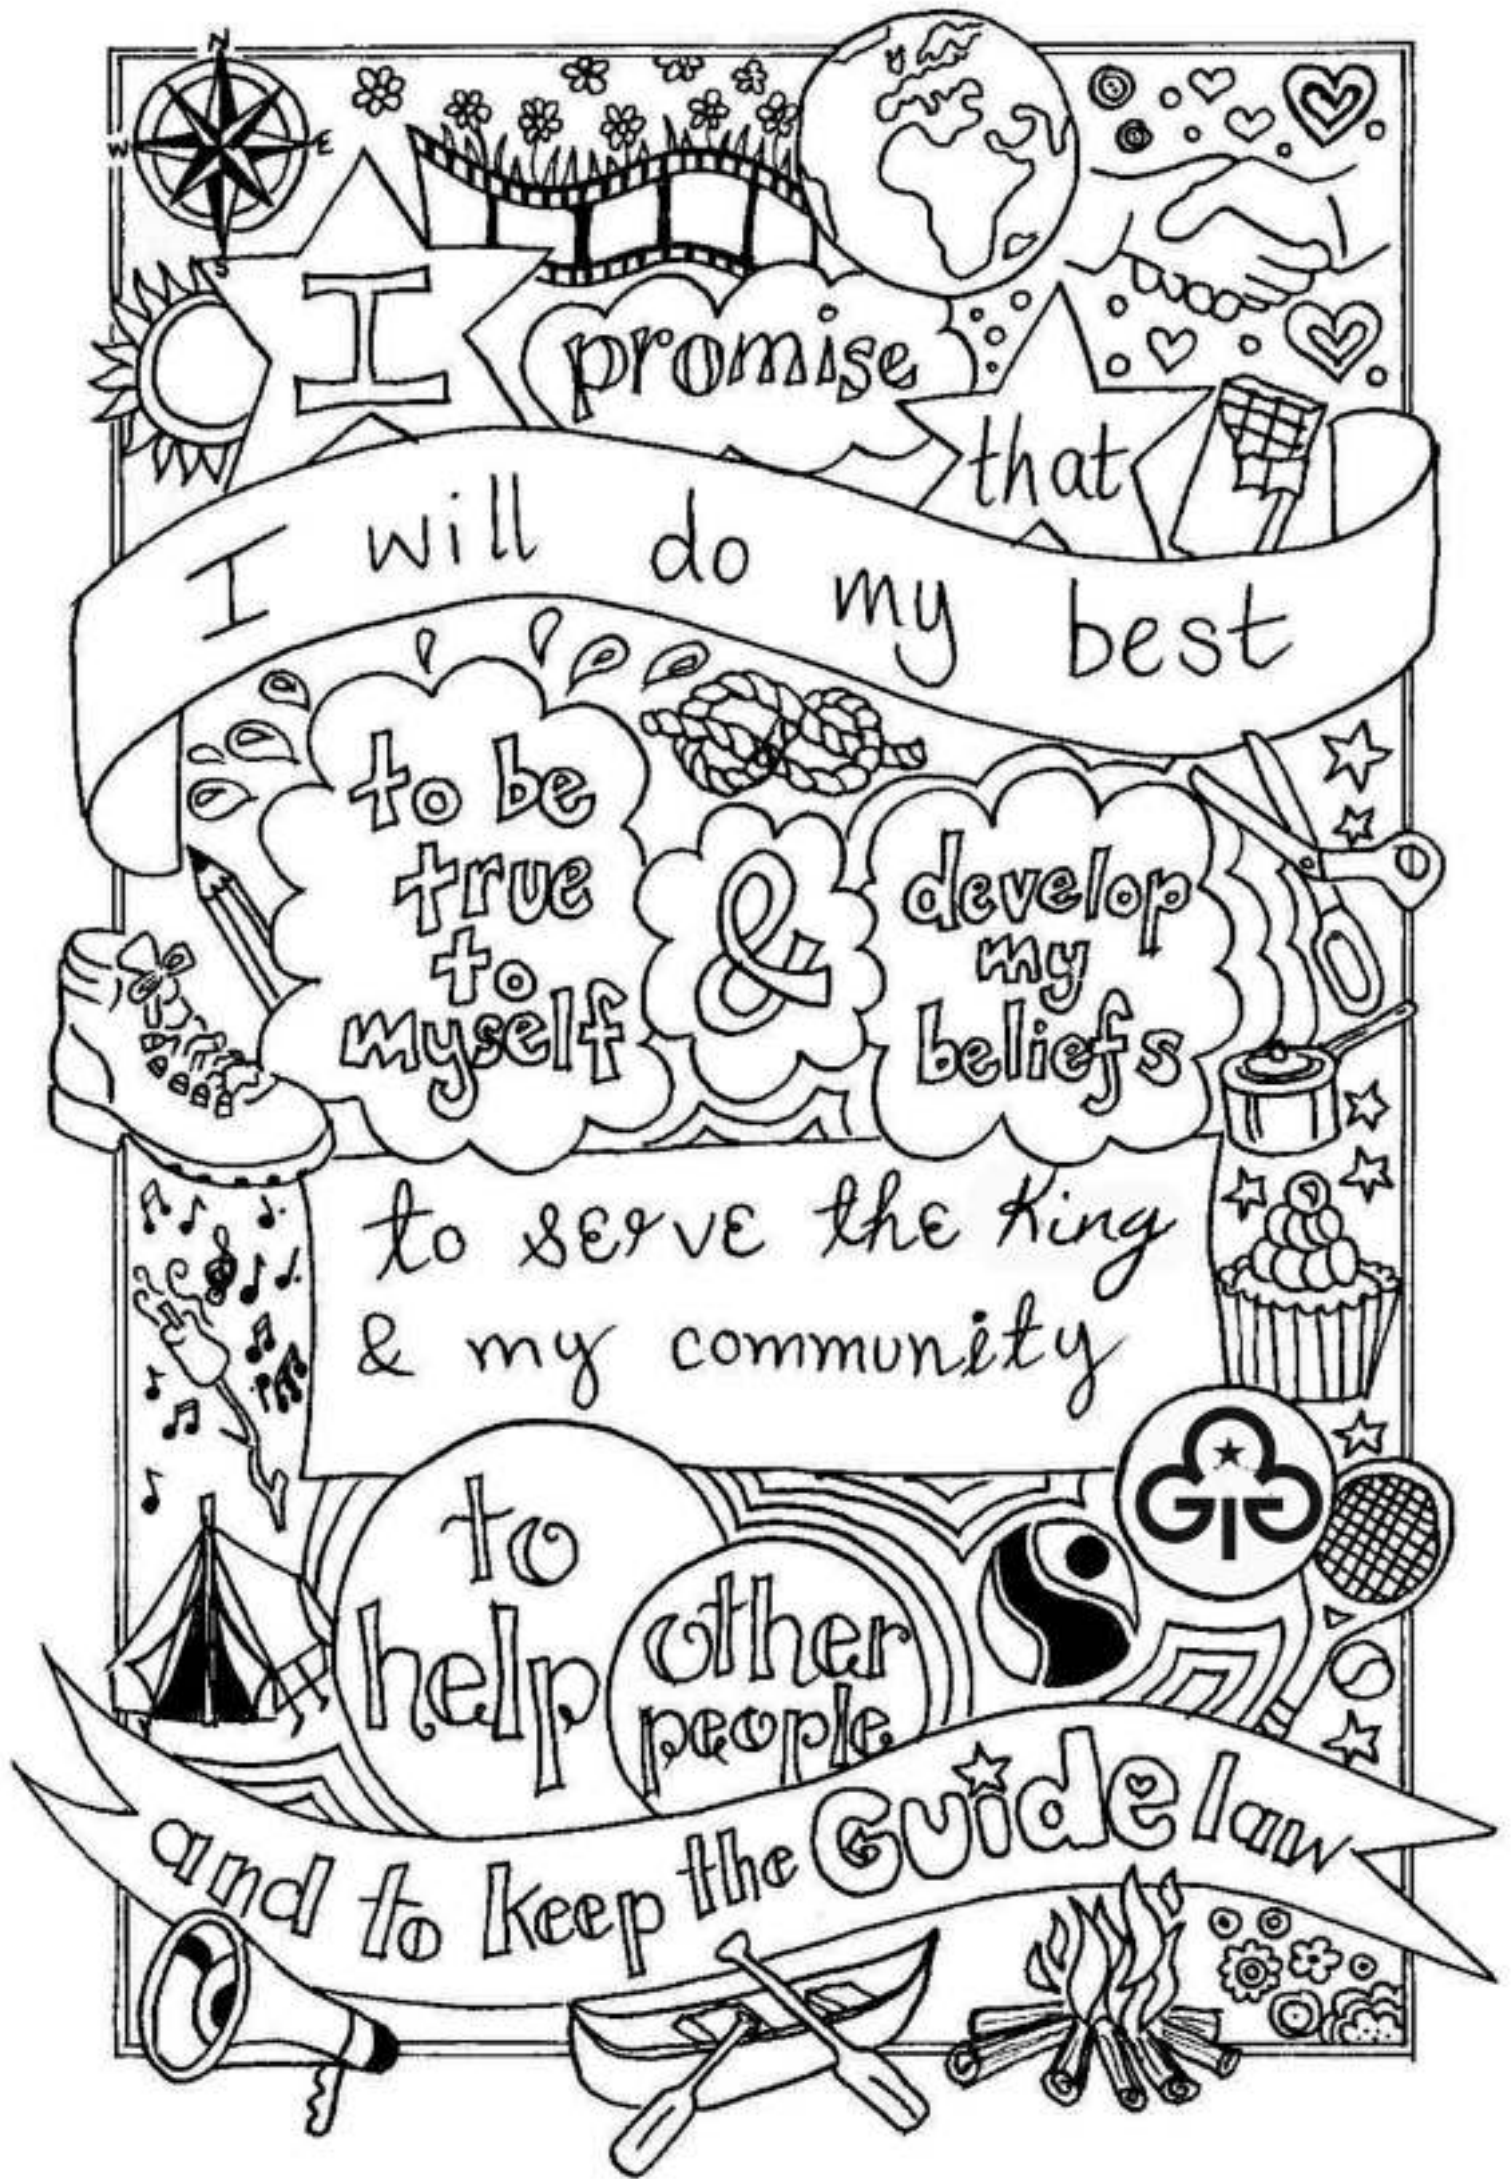 N
W E
S
I promise
that
I will do my best
to be
true
to
myself
&
develop
my
beliefs
to serve the King
& my community
to
help
other
people
and to keep the Guide law